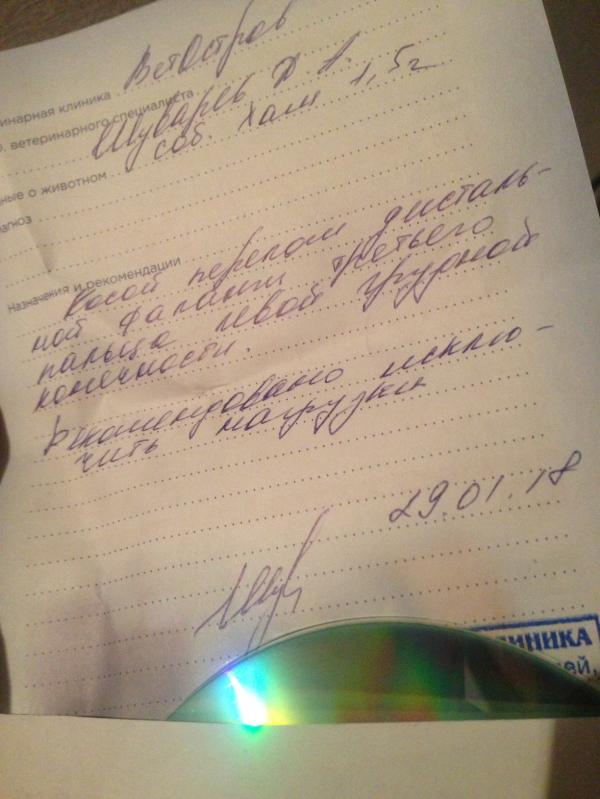 инарная клиника ВетОстров
. ветеринарного специалиста Шуварев Д А.
ные о животном соб. Хаги 1,5г
агноз
Назначения и рекомендации
Косой перелом дисталь-
ной фаланги третьего
пальца левой грудной
конечности.
Рекомендовано исклю-
чить нагрузки
29.01.18
ЛИНИКА
ей,